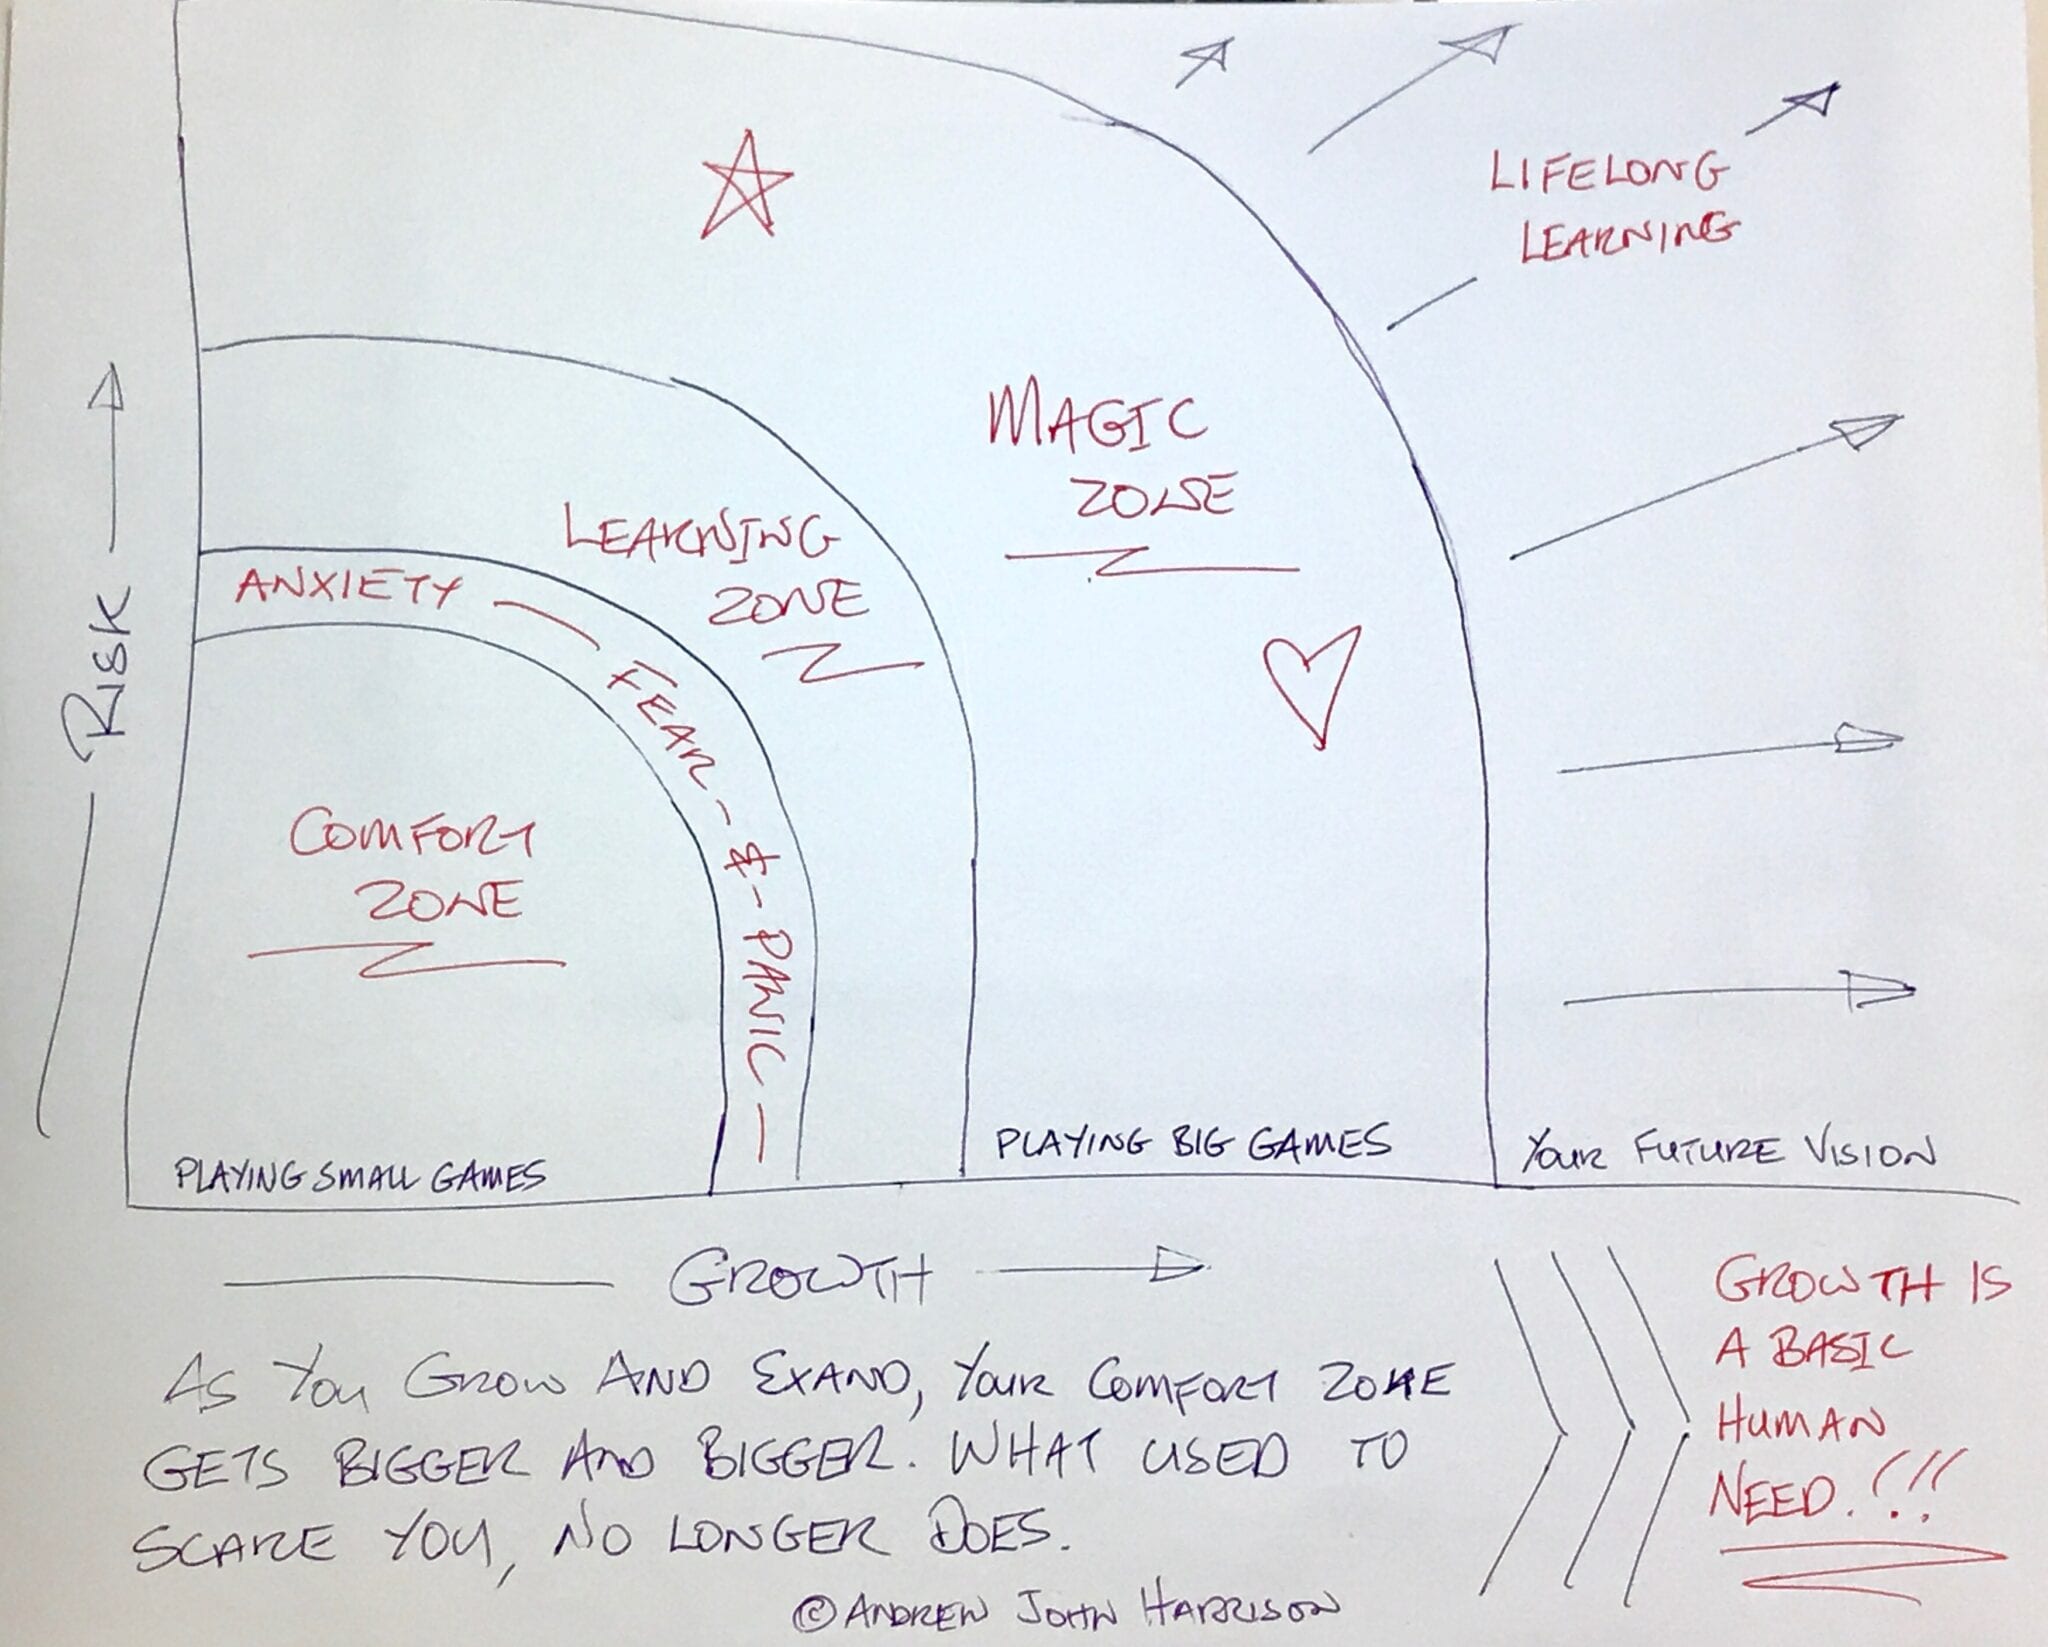 LIFELONG
LEARNING
MAGIC
ZONE
LEARNING
ZONE
ANXIETY — FEAR - & - PANIC —
COMFORT
ZONE
RISK
PLAYING SMALL GAMES
PLAYING BIG GAMES
YOUR FUTURE VISION
GROWTH
AS YOU GROW AND EXAND, YOUR COMFORT ZONE
GETS BIGGER AND BIGGER. WHAT USED TO
SCARE YOU, NO LONGER DOES.
© ANDREW JOHN HARRISON
GROWTH IS
A BASIC
HUMAN
NEED.!!!